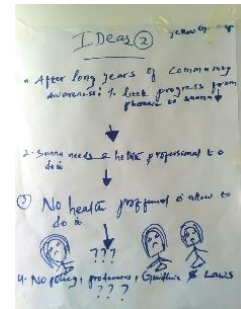 IDeas ②
• After long years of Community
awareness: little progress from
pharaonic to sunna
2. Sunna needs a health professional to
do it
③ No health professional is allow to
do it
? ? ?
4. No policy, procedures, Guidline & Laws
? ? ?